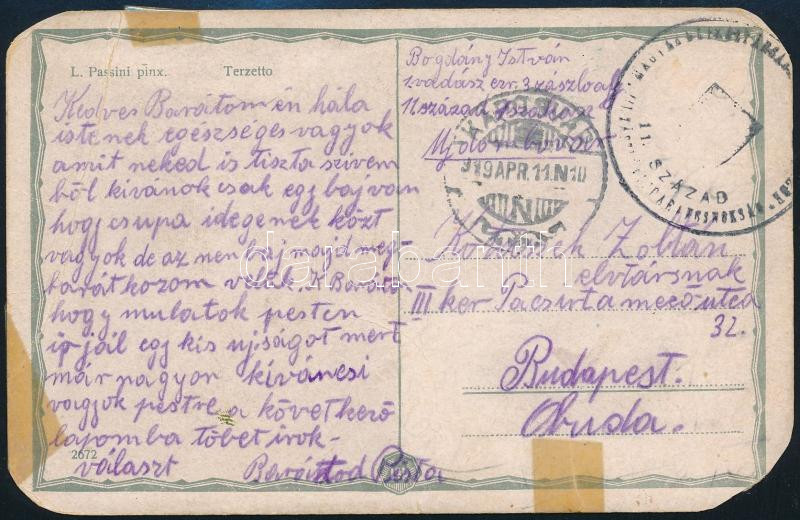 L. Passini pinx. Terzetto
Kedves Barátom én hála
istenek egészséges vagyok
amit neked is tiszta szivem
ből kivánok csak egy baj van
hogy csupa idegenek közt
vagyok de az nem baj majd meg
barátkozom velek. Z. Barátom
hogy mulatok pesten
irjál egy kis ujságot mert
már nagyon kíváncsi
vagyok pestre a következő
lapomba töbet irok-
választ Barátod Pista
2672
Bogdány István
1. vadász ezr. 3 zászloalj
11 század
Ujdombovár
919 APR. 11. N 10
11. SZÁZAD
Zoltán
elvtársnak
III ker Pacsirtamező utca
32.
Budapest.
Obuda.
darabanth